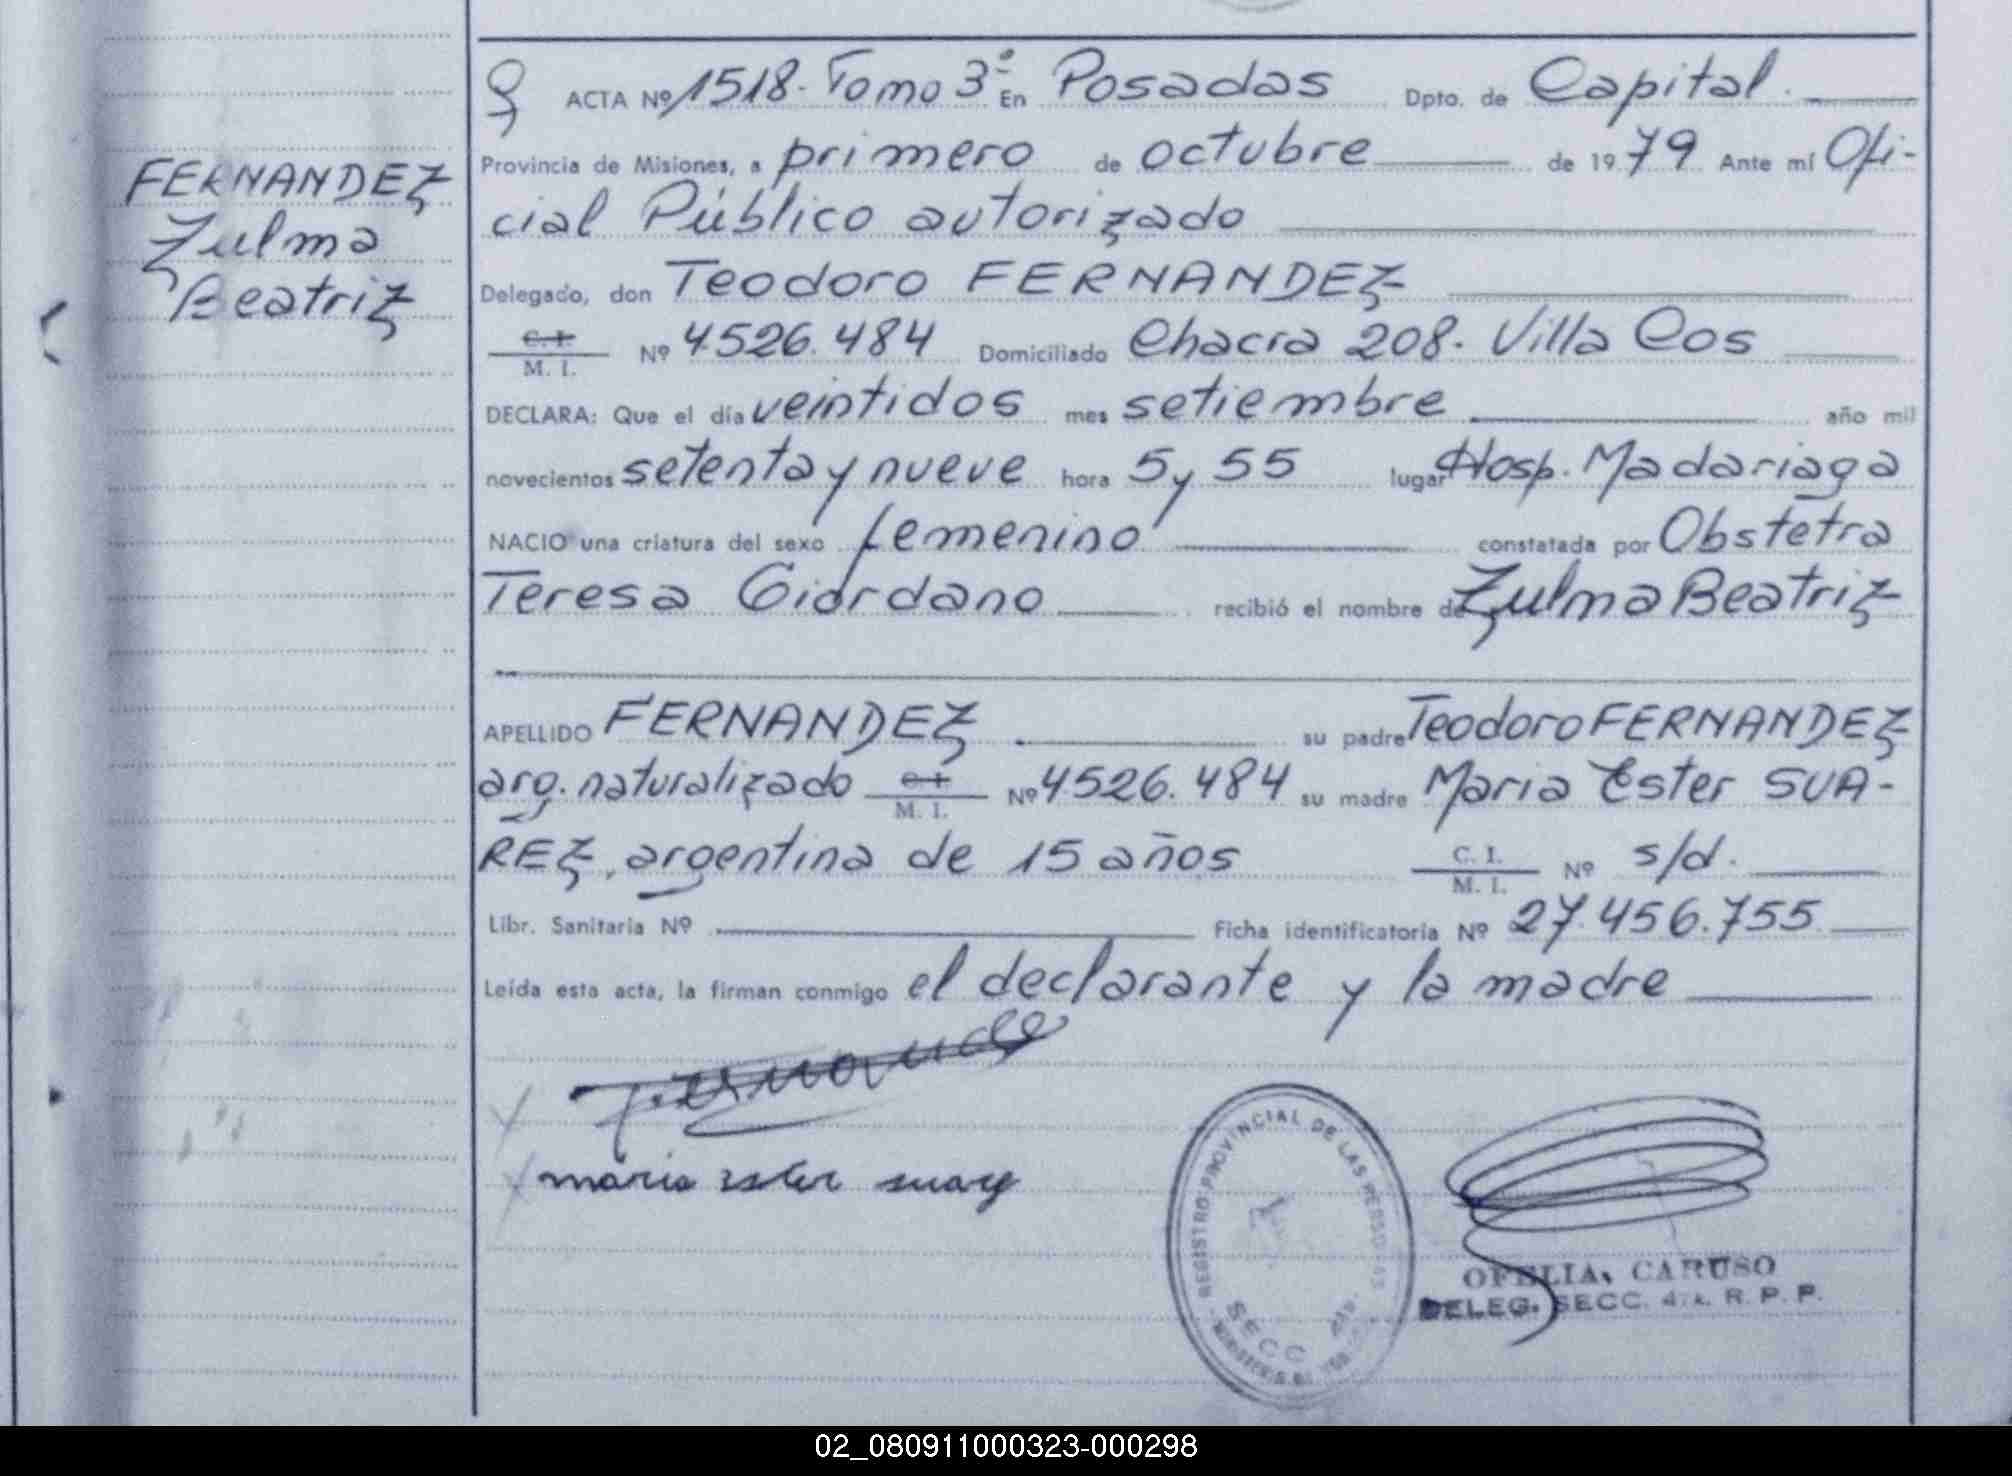 FERNANDEZ
Zulma
Beatriz
ACTA Nº 1518. Tomo 3º En Posadas Dpto. de Capital.
Provincia de Misiones, a primero de octubre de 1979 Ante mí Ofi-
cial Público autorizado
Delegado, don Teodoro FERNANDEZ
C. I.
M. I. Nº 4.526.484 Domiciliado Chacra 208. Villa Cos
DECLARA: Que el día veintidos mes setiembre año mil
novecientos setenta y nueve hora 5 y 55 lugar Hosp. Madariaga
NACIO una criatura del sexo femenino constatada por Obstetra
Teresa Giordano recibió el nombre de Zulma Beatriz
APELLIDO FERNANDEZ su padre Teodoro FERNANDEZ
arg. naturalizado C. I. M. I. Nº 4.526.484 su madre Maria Ester SUA-
REZ, argentina de 15 años C. I. M. I. Nº s/d.
Libr. Sanitaria Nº Ficha identificatoria Nº 27.456.755
Leída esta acta, la firman conmigo el declarante y la madre
maria ester
REGISTRO PROVINCIAL DE LAS PERSONAS
SECC
OFELIA CARUSO
DELEG. SECC. 4ta. R. P. P.
02_080911000323-000298